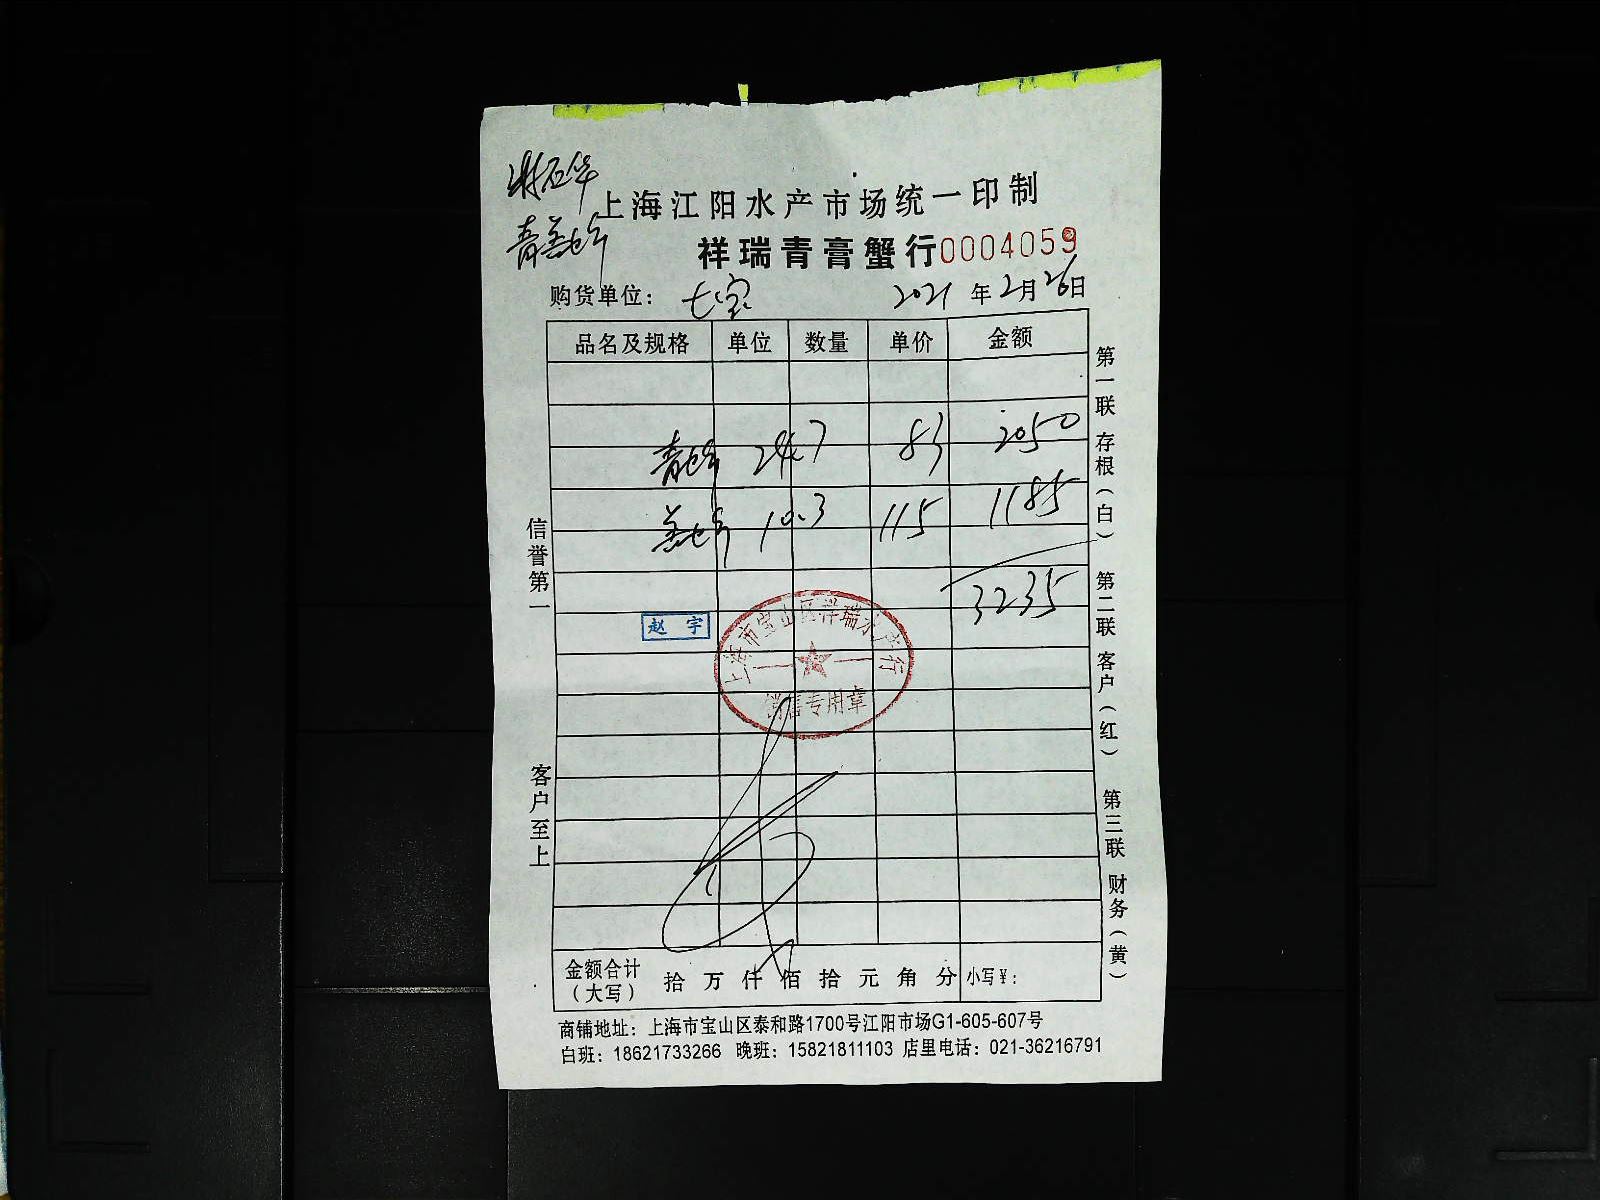 上海江阳水产市场统一印制
祥瑞青膏蟹行0004059
购货单位：七宝 2021年2月26日
品名及规格 单位 数量 单价 金额
24.7 83 2050
10.3 115 1185
3235
赵宇
上海市宝山区祥瑞水产行
销售专用章
信誉第一
客户至上
第一联 存根（白） 第二联 客户（红） 第三联 财务（黄）
金额合计（大写） 拾 万 仟 佰 拾 元 角 分 小写￥：
商铺地址：上海市宝山区泰和路1700号江阳市场G1-605-607号
白班：18621733266 晚班：15821811103 店里电话：021-36216791